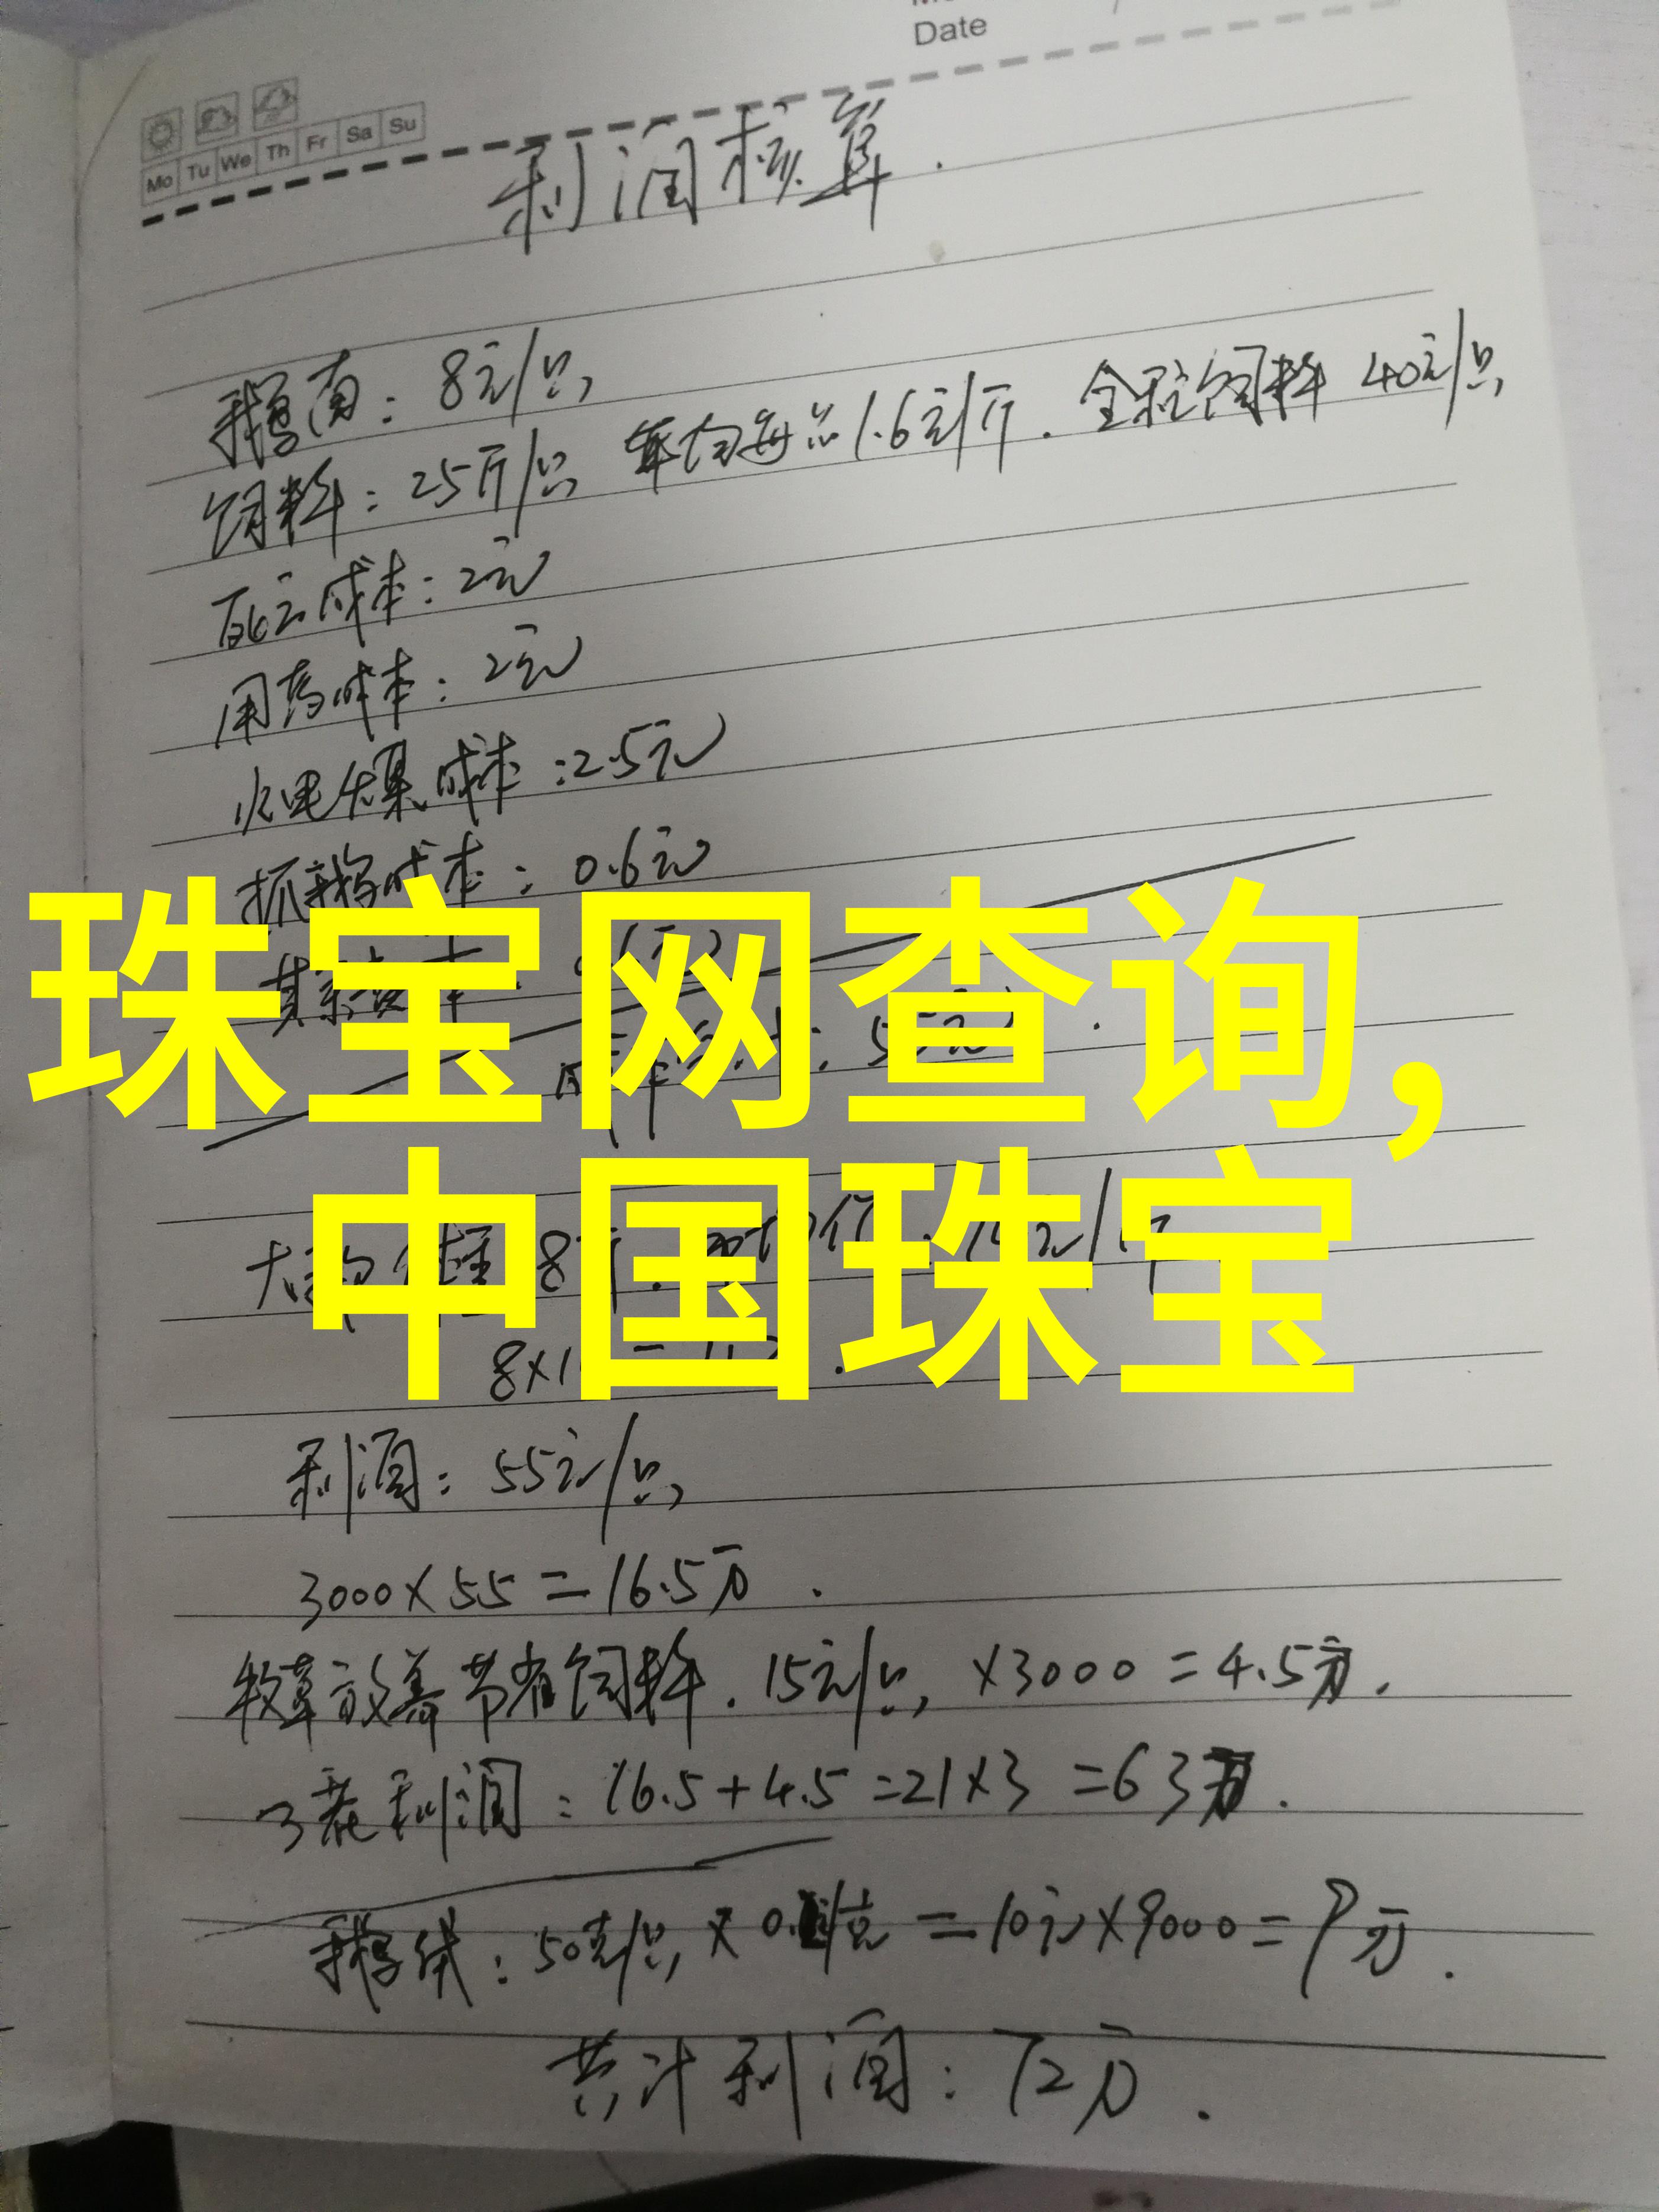 Date
Mo Tu We Th Fr Sa Su
利润核算.
鹅苗：8元/只
饲料：25斤/只 平均每斤1.6元/斤. 全程饲料 40元/只
死亡成本：2元
用药成本：2元
水电煤成本：2.5元
抓鹅成本：0.6元
珠宝网查询,
中国珠宝
利润：55元/只
3000×55=16.5万.
牧草放养节省饲料. 15元/只 ×3000=4.5万.
3茬利润：16.5+4.5=21×3=63万.
鹅绒：50克/只 =10元×9000=9万.
共计利润：72万.